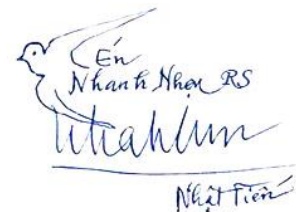 Én
Nhanh Nhẹn RS
Nhật Tiến